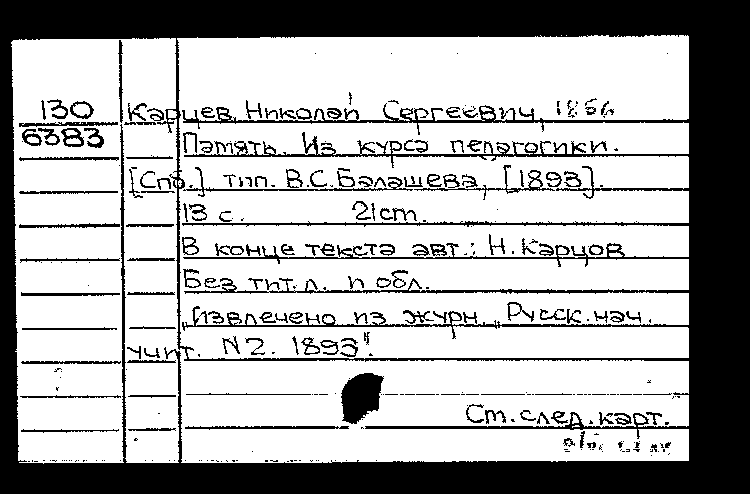 130 Карцев, Николай Сергеевич,
6383 Память. Из курса педагогики.
[Спб.] тип. В.С.Балашева, [1893].
13 с. 21 cm.
В конце текста авт.: Н.Карцов
Без тит.л. и обл.
„Извлечено из журн. „Русск.нач.
учит. N2. 1893".
Ст.след.карт.